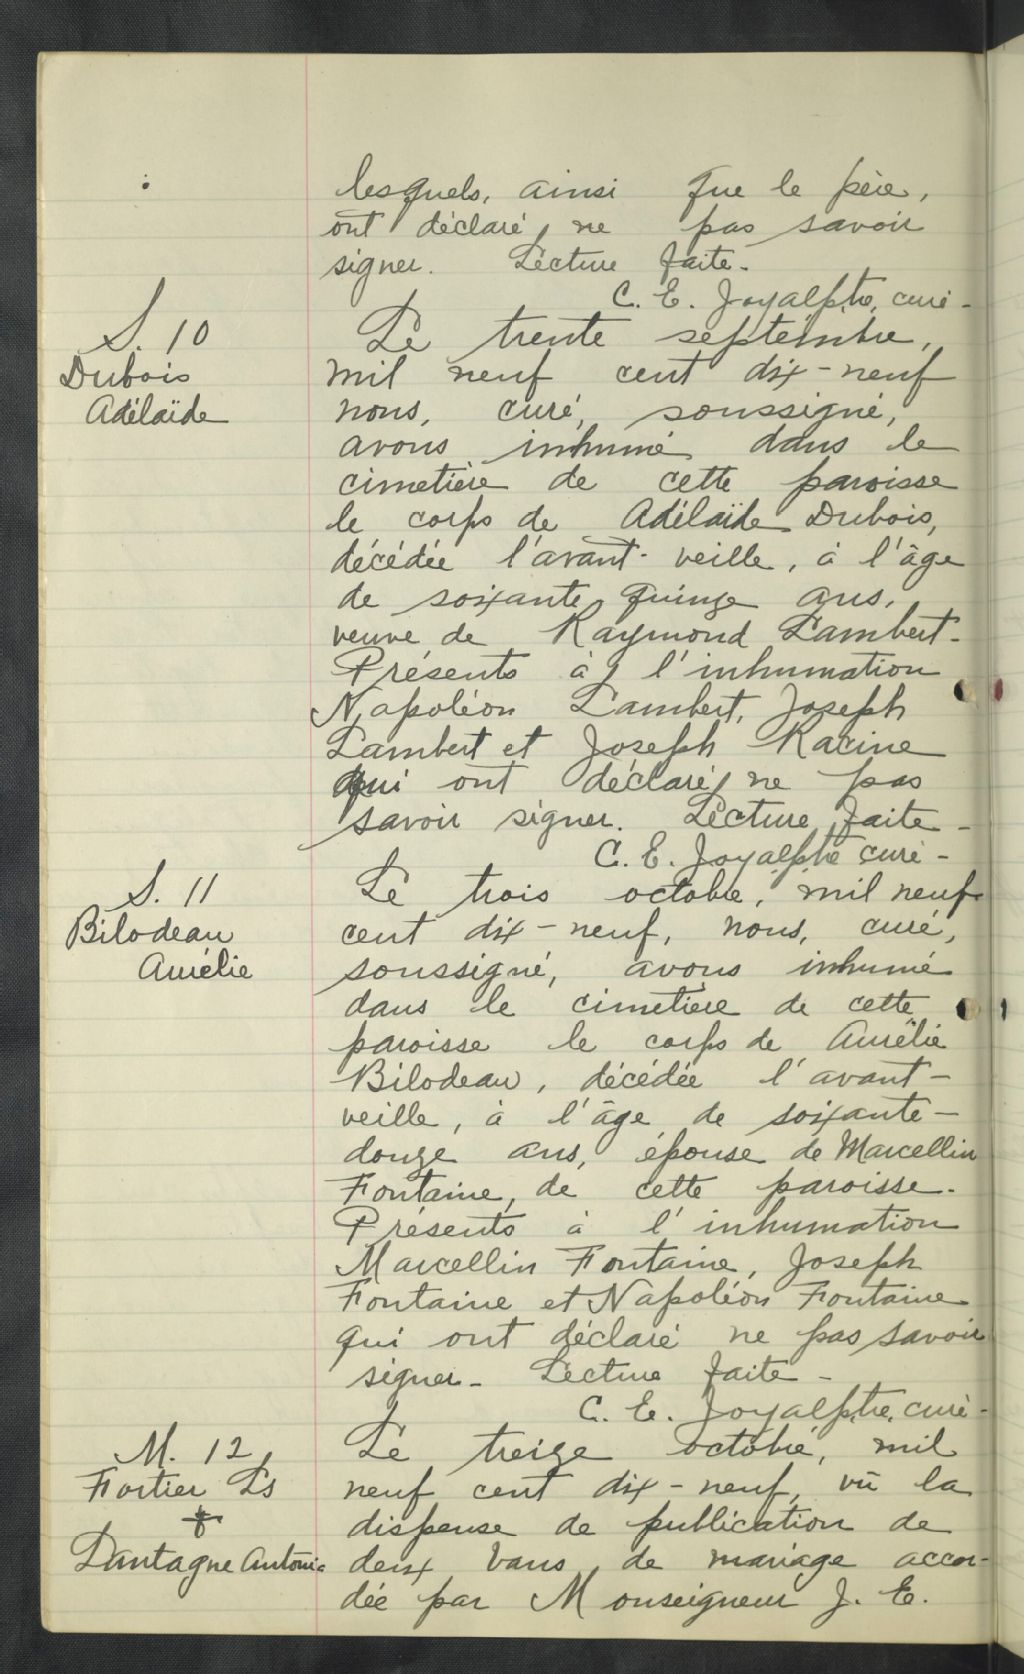 lesquels, ainsi que le père,
ont déclaré ne pas savoir
signer. Lecture faite.
C. E. Joyalptre, curé -
S. 10
Dubois
Adélaïde
Le trente septembre,
mil neuf cent dix-neuf
nous, curé, soussigné,
avons inhumé dans le
cimetière de cette paroisse
le corps de Adélaïde Dubois,
décédée l'avant-veille, à l'âge
de soixante quinze ans,
veuve de Raymond Lambert.
Présents à l'inhumation
Napoléon Lambert, Joseph
Lambert et Joseph Racine
qui ont déclaré ne pas
savoir signer. Lecture faite -
C. E. Joyalptre curé -
S. 11
Bilodeau
Aurélie
Le trois octobre, mil neuf
cent dix-neuf, nous, curé,
soussigné, avons inhumé
dans le cimetière de cette
paroisse le corps de Aurélie
Bilodeau, décédée l'avant-
veille, à l'âge de soixante-
douze ans, épouse de Marcellin
Fontaine, de cette paroisse.
Présents à l'inhumation
Marcellin Fontaine, Joseph
Fontaine et Napoléon Fontaine
qui ont déclaré ne pas savoir
signer - Lecture faite -
C. E. Joyalptre, curé -
M. 12
Fortier Ls
+
Dantagne Antonia
Le treize octobre, mil
neuf cent dix-neuf, vû la
dispense de publication de
deux bans de mariage accor-
dée par Monseigneur J. E.